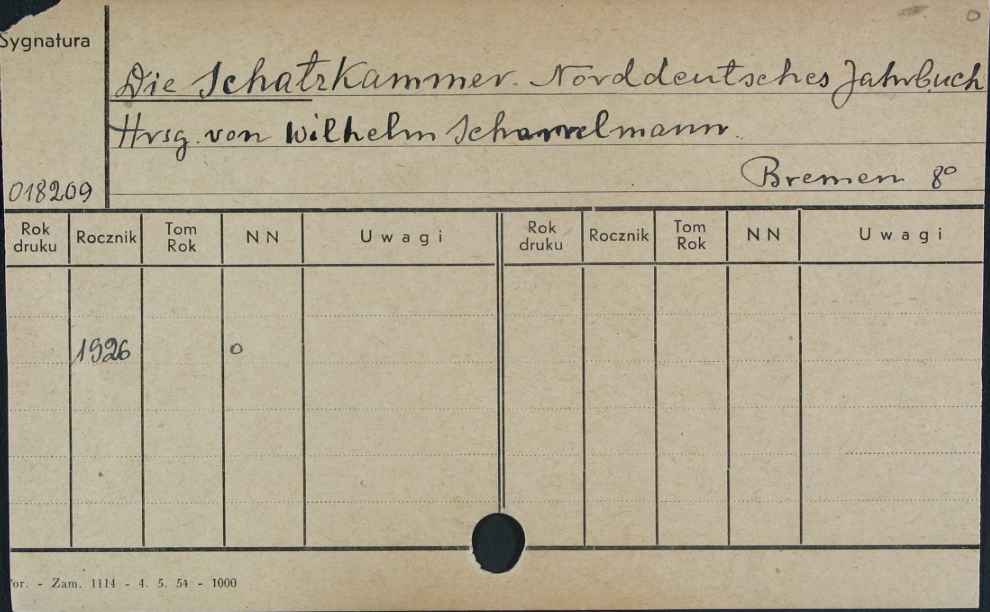 0
Sygnatura
Die Schatzkammer. Norddeutsches Jahrbuch
Hrsg. von Wilhelm Scharrelmann.
Bremen 8º
018209
Rok druku Rocznik Tom Rok NN Uwagi Rok druku Rocznik Tom Rok NN Uwagi
1926 o
- Zam. 1114 - 4. 5. 54 - 1000